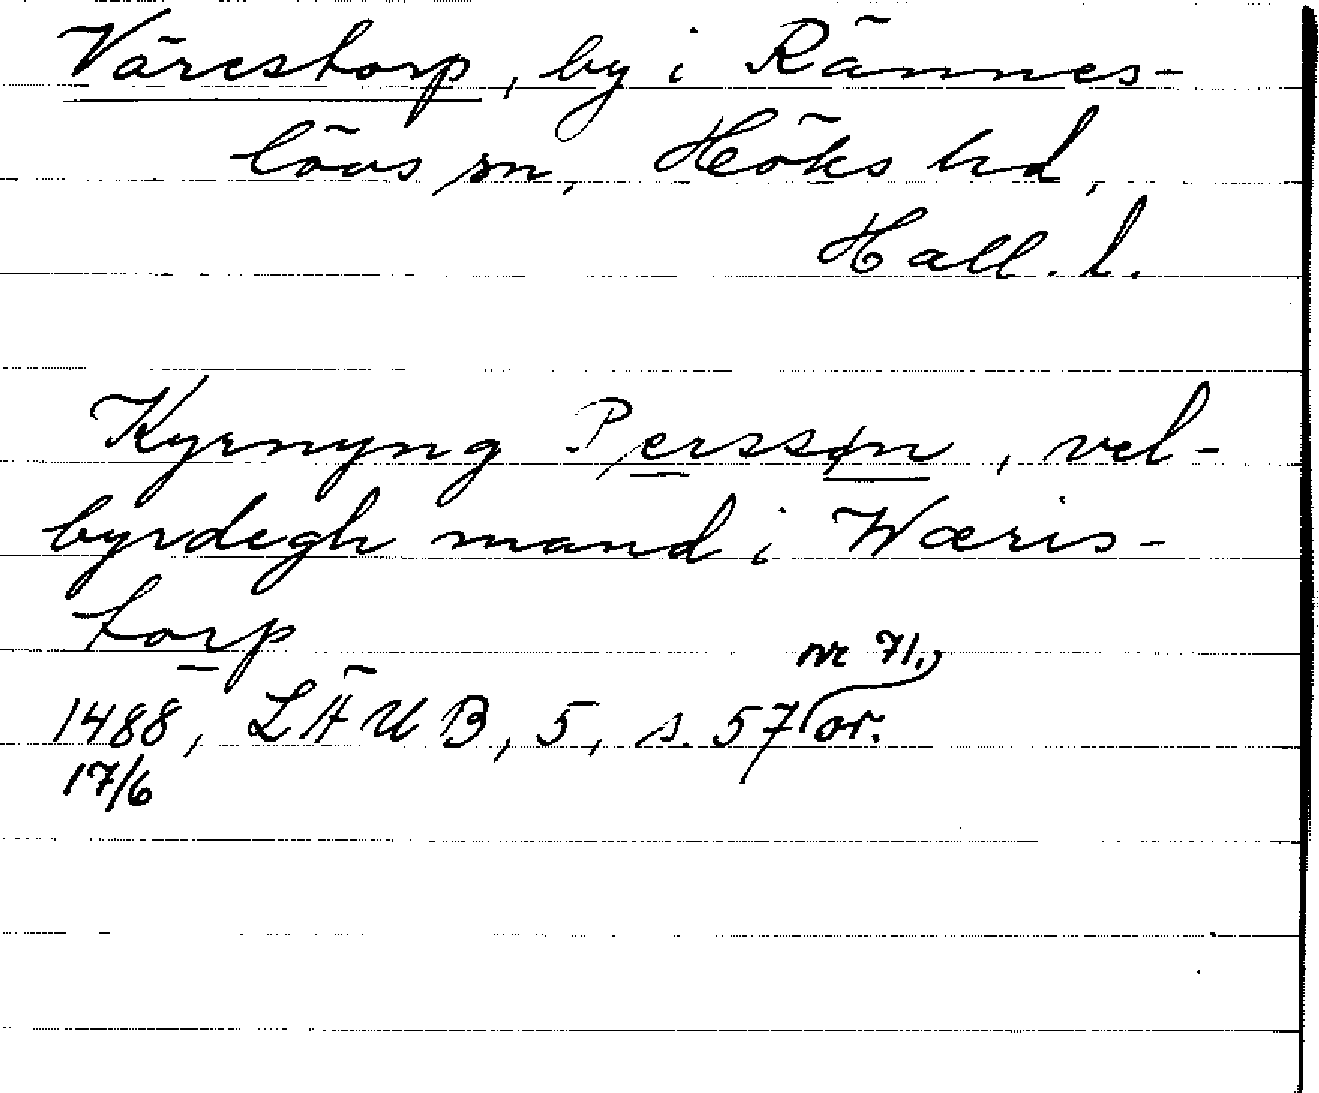 Värestorp, by i Rännes-
lövs sn, Höks hd,
Hall. l.
Kyrnyng Perssøn, vel-
byrdegh mand i Wæris-
torp
nr 71,
1488, LÄUB, 5, s. 57 or.
17/6